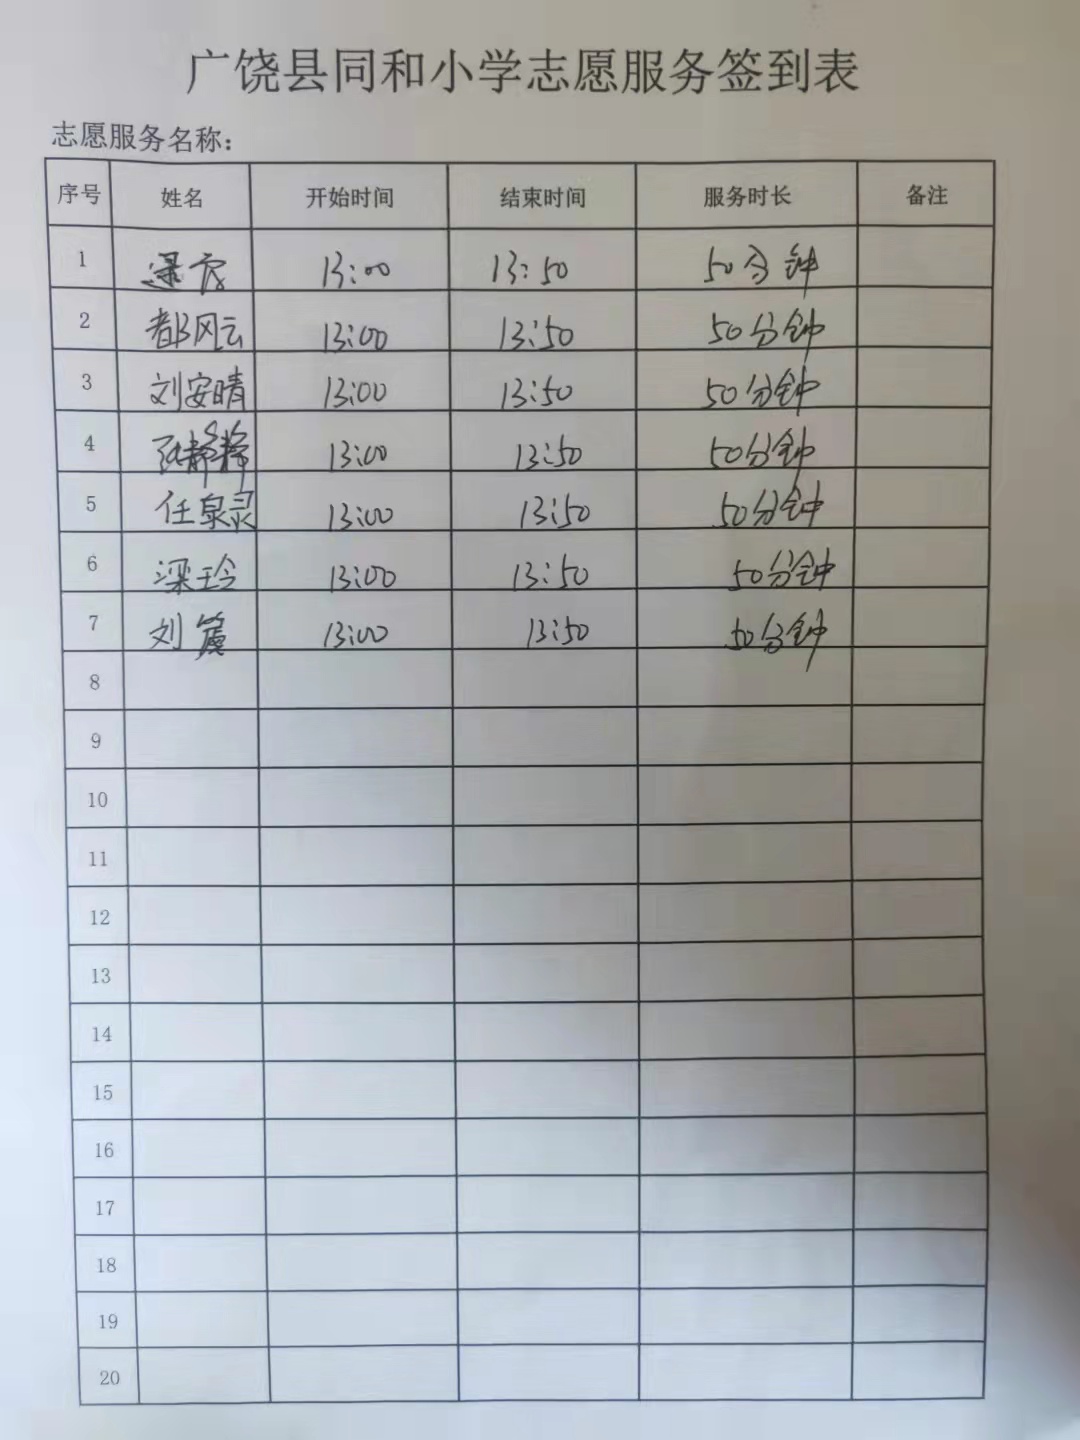 广饶县同和小学志愿服务签到表
志愿服务名称：
序号 姓名 开始时间 结束时间 服务时长 备注
1 13:00 13:50 50分钟
2 都风云 13:00 13:50 50分钟
3 刘安晴 13:00 13:50 50分钟
4 张静静 13:00 13:50 50分钟
5 任泉灵 13:00 13:50 50分钟
6 梁玲 13:00 13:50 50分钟
7 刘 13:00 13:50 50分钟
8
9
10
11
12
13
14
15
16
17
18
19
20